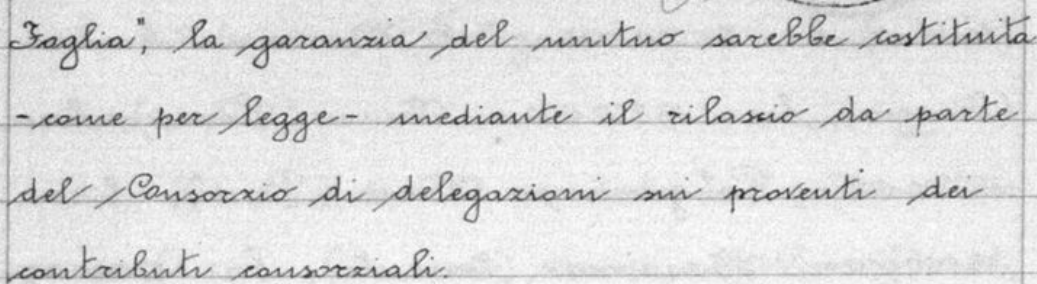 Foglia", la garanzia del mutuo sarebbe costituita
-come per legge- mediante il rilascio da parte
del Consorzio di delegazioni sui proventi dei
contributi consorziali.